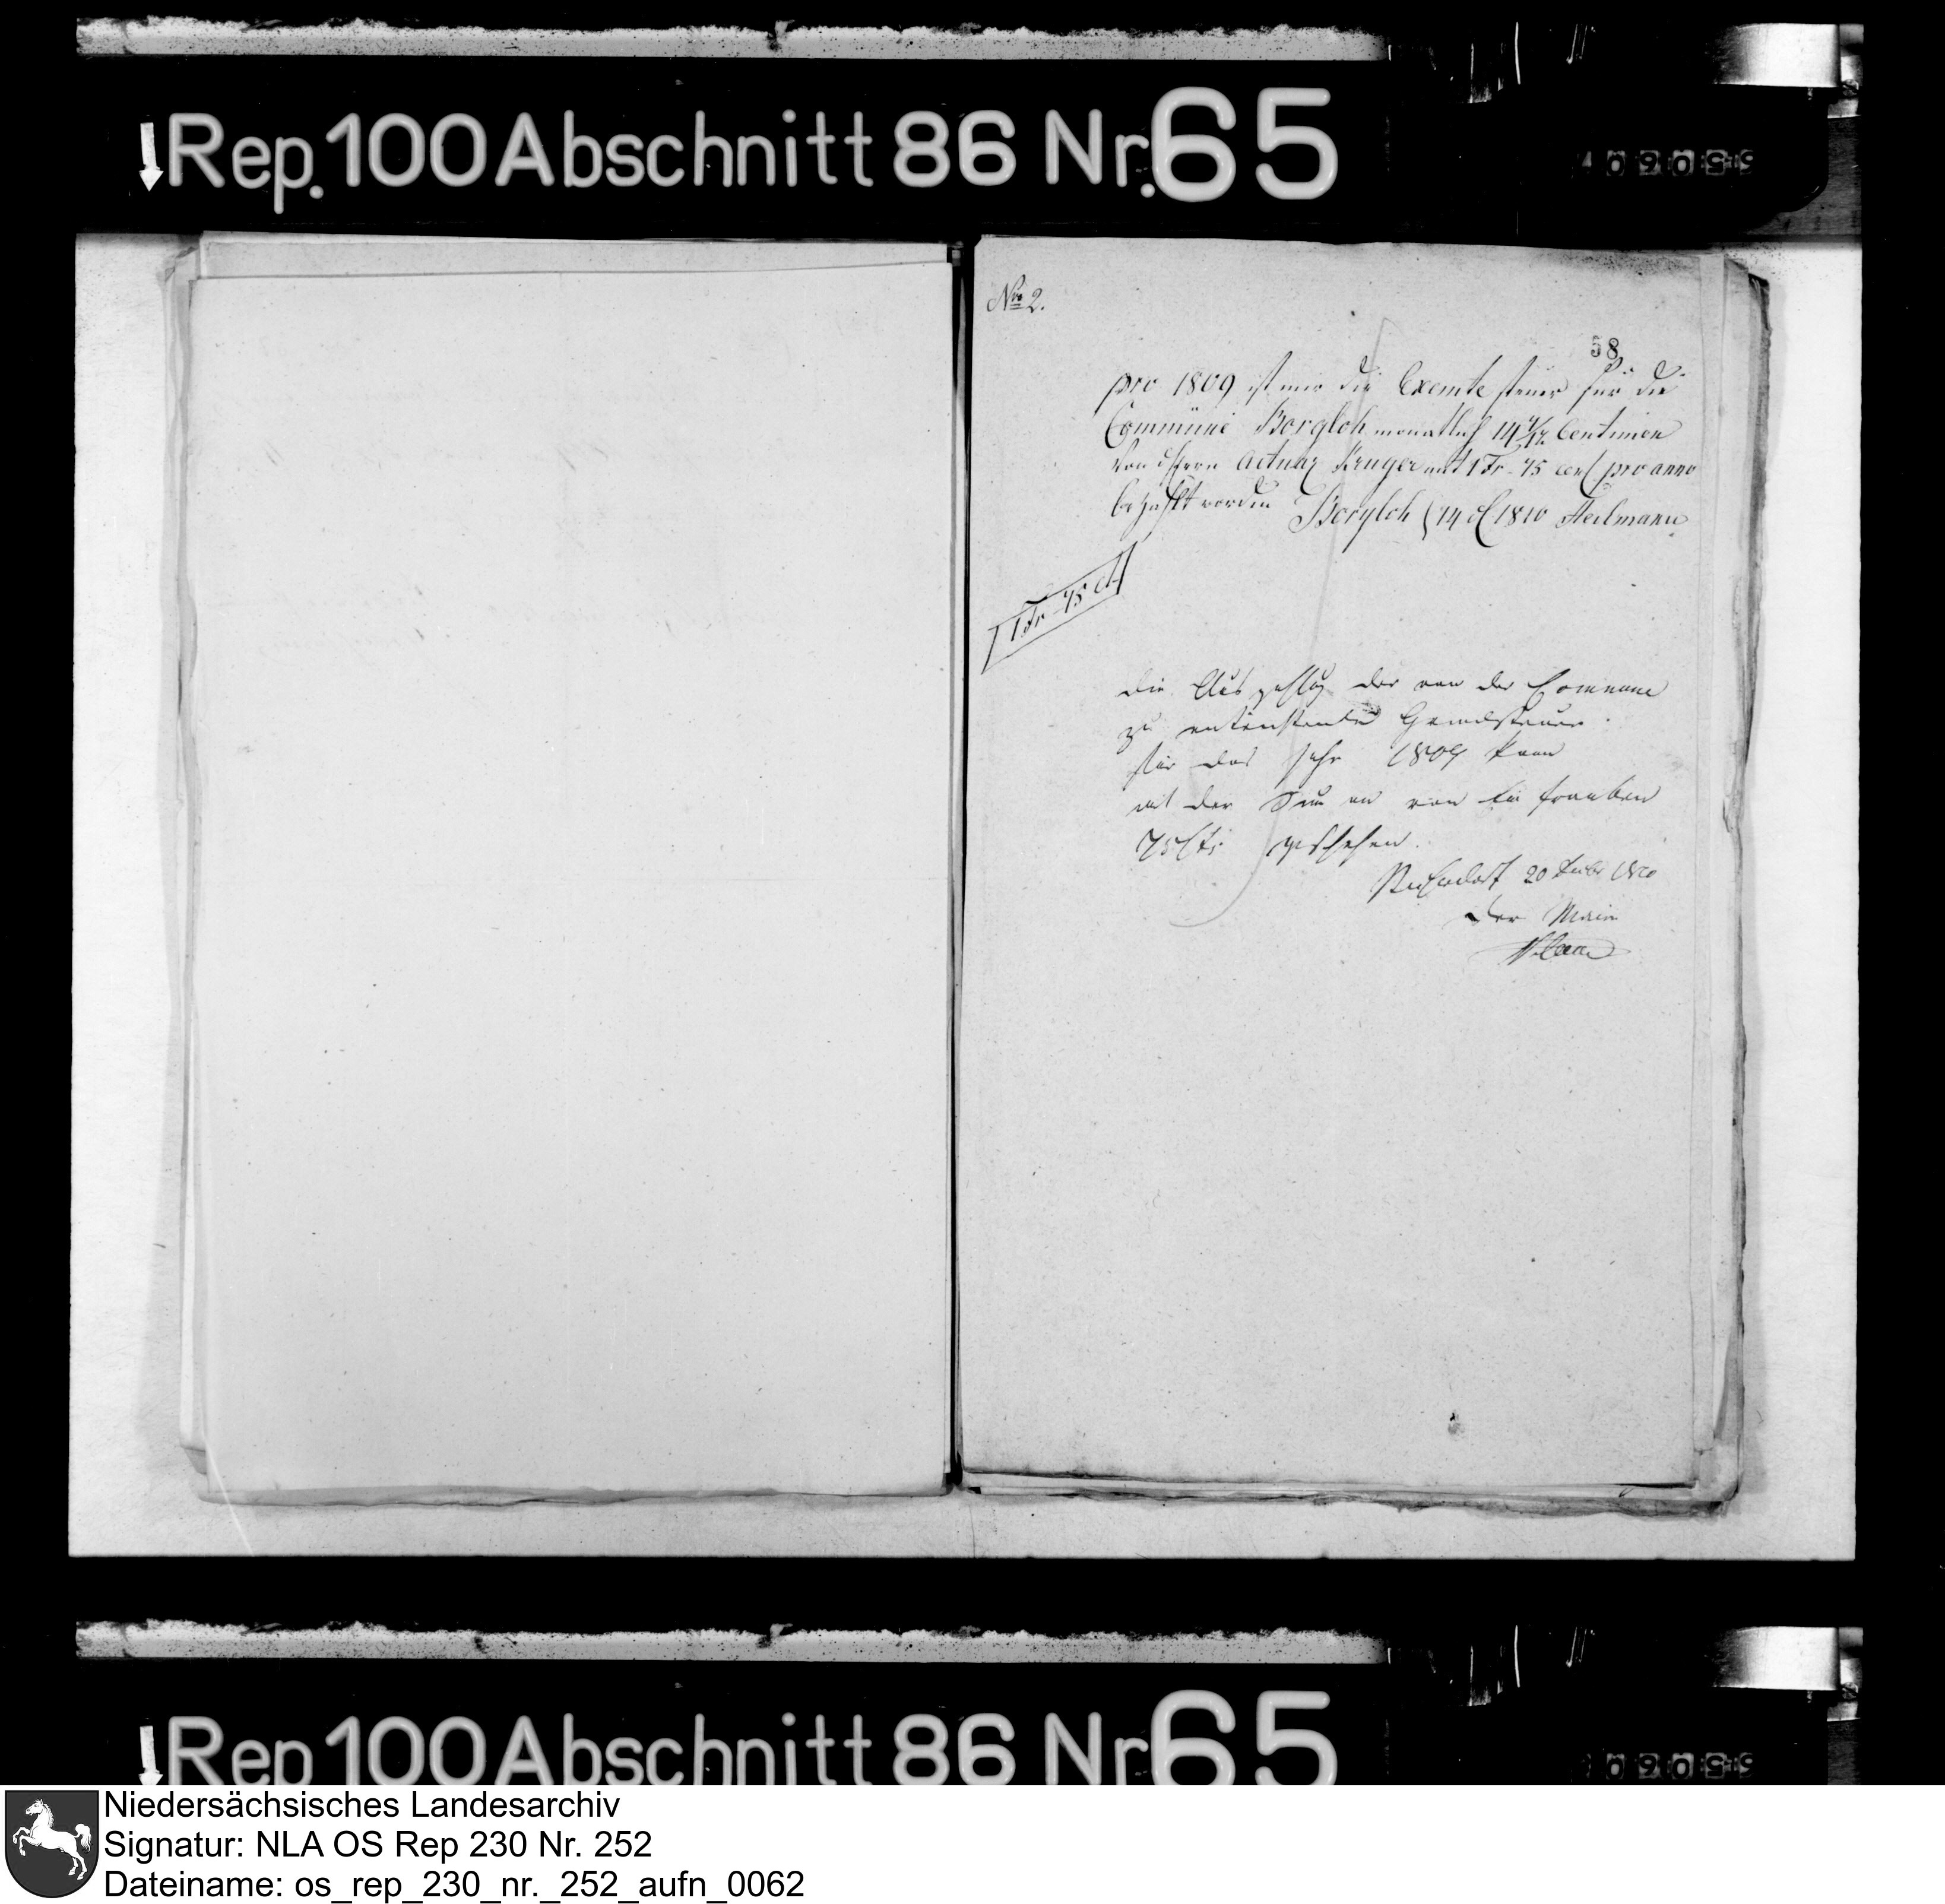 Rep. 100 Abschnitt 86 Nr. 65
No 2.
58
pro 1809 ist mir die Exemte steuer für die
Commüne Borgloh monatlich 14 7/12 Centimen
von Herrn Actuar Kruger mit 1 Fr. 75 Cent. pro anno
bezahlt worden Borgloh 1810 Heilmann
1 Fr 75 ct
die der von der Commune
zu Grundsteuer
für das Jahr 1809 kann
mit der von Ein Franken
75 Cts geschehen.
20 1810
der Maire
Rep 100 Abschnitt 86 Nr 65
Niedersächsisches Landesarchiv
Signatur: NLA OS Rep 230 Nr. 252
Dateiname: os_rep_230_nr._252_aufn_0062